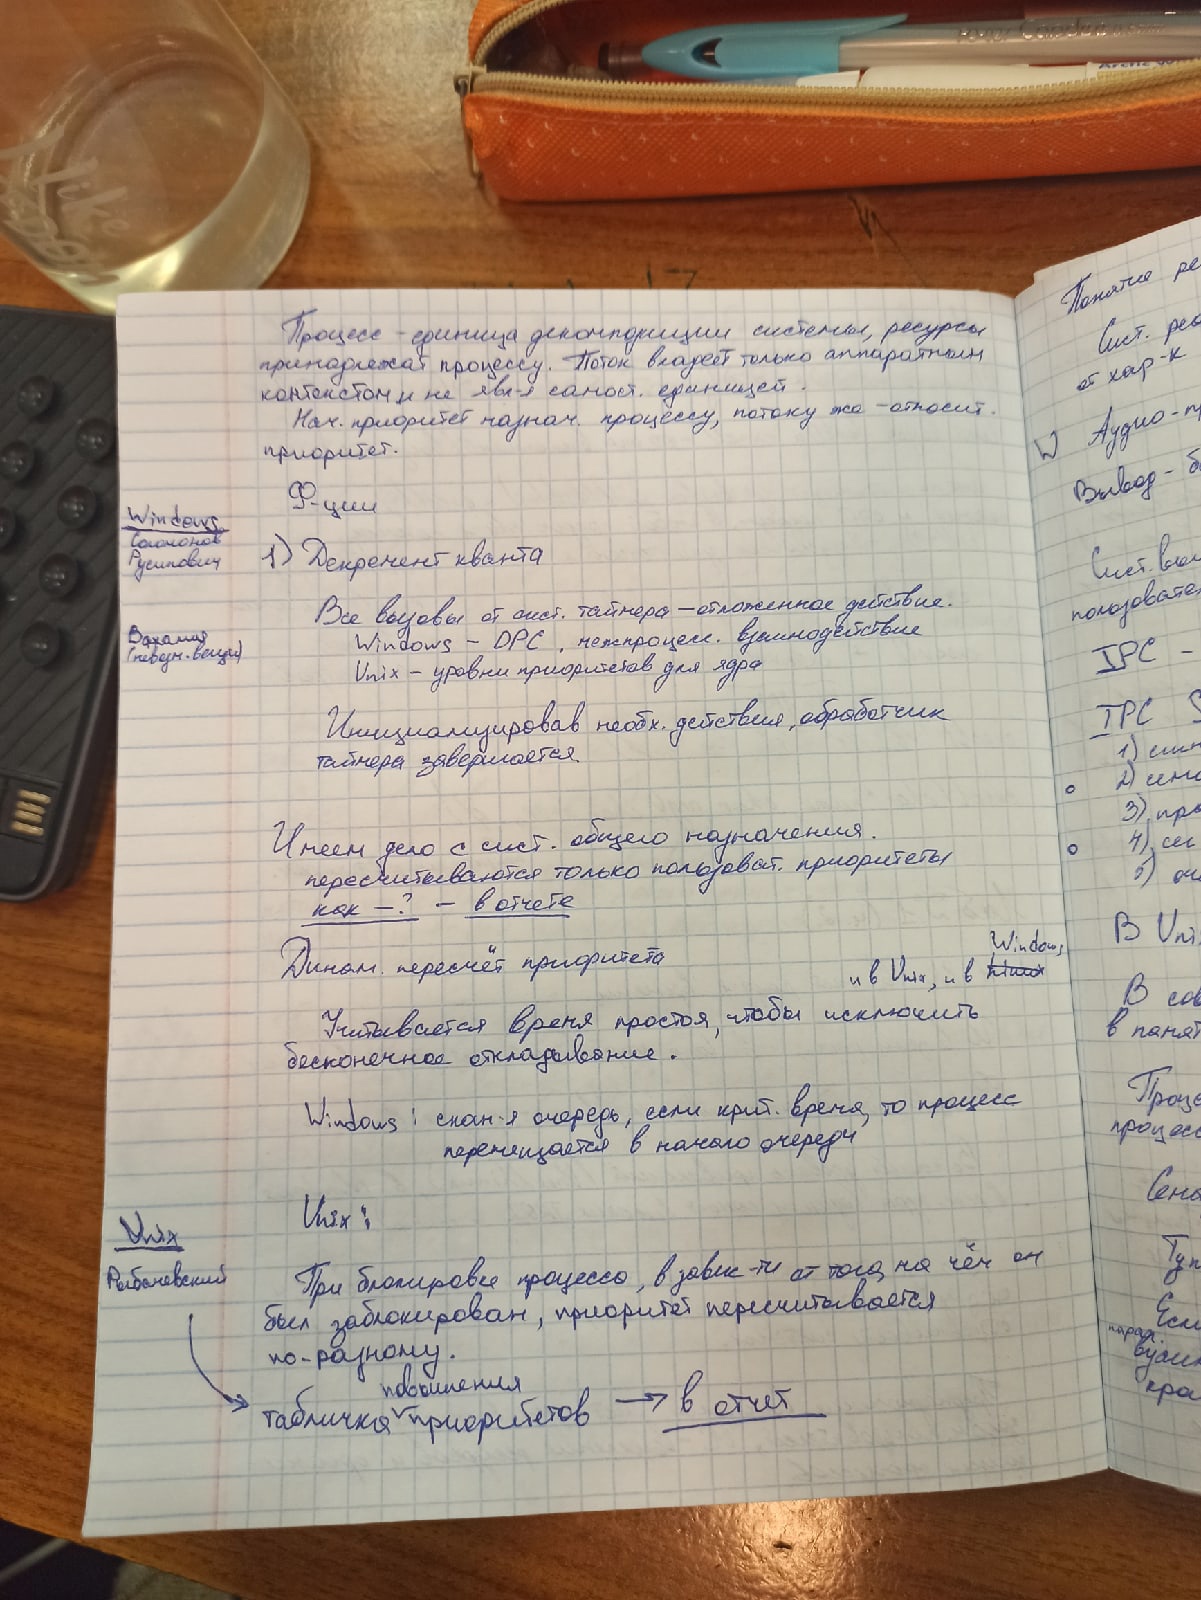 Like
Процесс - единица декомпозиции системы, ресурсы
принадлежат процессу. Поток владеет только аппаратным
контекстом и не явл-я самост. единицей.
Нач. приоритет назнач. процессу, потоку же - относит.
приоритет.
Ф-ции
Windows
Соломонов
Русинович
1) Декремент кванта
Все вызовы от сист. таймера - отложенное действие.
Windows - DPC, межпроцесс. взаимодействие
Unix - уровни приоритетов для ядра
Вахалия
Инициализировав необх. действия, обработчик
таймера завершается
Имеем дело с сист. общего назначения.
пересчитываются только пользоват. приоритеты
как - ? - в отчете
Динам. пересчёт приоритета
и в Unix, и в Windows
Учитывается время простоя, чтобы исключить
бесконечное откладывание.
Windows: скан-я очередь, если крит. время, то процесс
перемещается в начало очереди
Unix:
Unix
Рыбачевский
При блокировке процесса, в завис-ти от того, на чём он
был заблокирован, приоритет пересчитывается
по-разному.
табличка повышения приоритетов → в отчет
Понятие
Сист.
от хар-к
Аудио-
Вывод -
Сист.
IPC -
IPC
1)
2)
3)
4)
5)
В Unix
В
в
Если